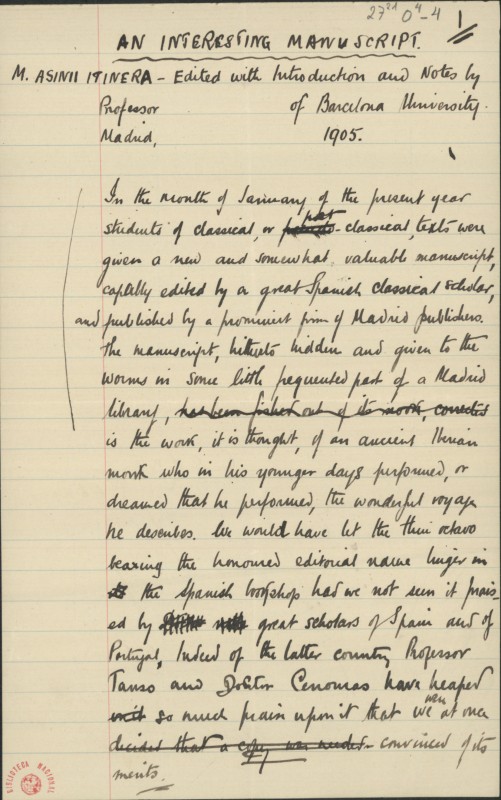 27²¹ 0⁴-4
AN INTERESTING MANUSCRIPT.
M. ASINII ITINERA - Edited with Introduction and Notes by
Professor of Barcelona University.
Madrid, 1905.
In the month of January of the present year
post
students of classical, or pseudo-classical, texts were
given a new and somewhat valuable manuscript,
capitally edited by a great Spanish classical scholar,
and published by a prominent firm of Madrid publishers.
The manuscript, hitherto hidden and given to the
worms in some little frequented part of a Madrid
library, has been fished out of its nook, corrected
is the work, it is thought, of an ancient Iberian
monk who in his younger days performed, or
dreamed that he performed, the wonderful voyage
he describes. We would have let the thin octavo
bearing the honoured editorial name linger in
the Spanish bookshop had we not seen it prais-
ed by great scholars of Spain and of
Portugal. Indeed of the latter country Professor
Tanso and Doktor Cenouras have heaped
so much praise upon it that we at once
were
decided that a copy was needed convinced of its
merits.
BIBLIOTECA NACIONAL